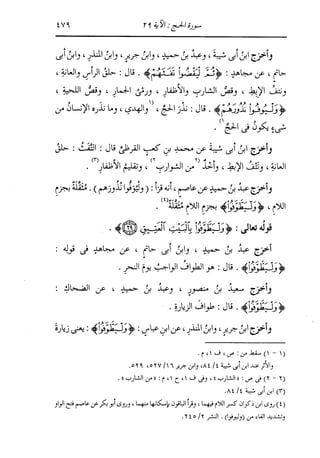 سورة الحج : الآية ٢٩
٤٧٩
وأخرج ابنُ أبى شيبةَ ، وعبدُ بنُ حميدٍ ، وابنُ جريرٍ ، وابنُ المنذرِ ، وابنُ أبى
حاتمٍ ، عن مجاهدٍ : ﴿ ثُمَّ لْيَقْضُوا تَفَثَهُمْ ﴾ . قال : حلقُ الرأسِ والعانةِ ،
ونتفُ الإبطِ ، وقصُّ الشاربِ والأظفارِ ، ورمىُ الجمارِ ، وقصُّ اللحيةِ ،
﴿ وَلْيُوفُوا نُذُورَهُمْ ﴾ . قال : نذرَ الحجِّ ، (١والهدي ، وما نذره الإنسانُ من
شىءٍ يكونُ فى الحجِّ١) .
وأخرج ابنُ أبى شيبةَ عن محمدِ بنِ كعبٍ القرظىِّ قال : التفثُ : حلقُ
العانةِ ، ونتفُ الإبطِ ، وأخذٌ (٢من الشواربِ٢) ، وتقليمُ الأظفارِ(٣) .
وأخرج عبدُ بنُ حميدٍ عن عاصمٍ ، أنه قرأ : ( وَلْيُوَفُّوا نُذُورَهم ) . مثقلةً بجزمِ
اللامِ ، ﴿ وَلْيَطَّوَّفُوا ﴾ بجزمِ اللامِ مثقلةً(٤) .
قولُه تعالى : ﴿ وَلْيَطَّوَّفُوا بِالْبَيْتِ الْعَتِيقِ ﴿٢٩﴾ ﴾ .
أخرج عبدُ بنُ حميدٍ ، وابنُ أبى حاتمٍ ، عن مجاهدٍ فى قولِه :
﴿ وَلْيَطَّوَّفُوا ﴾ . قال : هو الطوافُ الواجبُ يومَ النحرِ .
وأخرج سعيدُ بنُ منصورٍ ، وعبدُ بنُ حميدٍ ، عن الضحاكِ :
﴿ وَلْيَطَّوَّفُوا ﴾ . قال : طوافُ الزيارةِ .
وأخرج ابنُ جريرٍ ، وابنُ المنذرِ ، عن ابنِ عباسٍ : ﴿ وَلْيَطَّوَّفُوا ﴾ : يعنى زيارةَ
(١ - ١) سقط من : ص ، ف ١ ، م .
والأثر عند ابن أبى شيبة ٤ / ٨٤ ، وابن جرير ١٦ / ٥٢٧ ، ٥٢٩ .
(٢ - ٢) فى ص : « الشارب » ، وفى ف ١ ، ح ١ ، م : « من الشارب » .
(٣) ابن أبى شيبة ٤ / ٨٤ .
(٤) روى ابن ذكوان كسر اللام فيهما ، وقرأ الباقون بإسكانها منهما ، وروى أبو بكر عن عاصم فتح الواو
وتشديد الفاء من (وليوفوا) . النشر ٢ / ٢٤٥ .